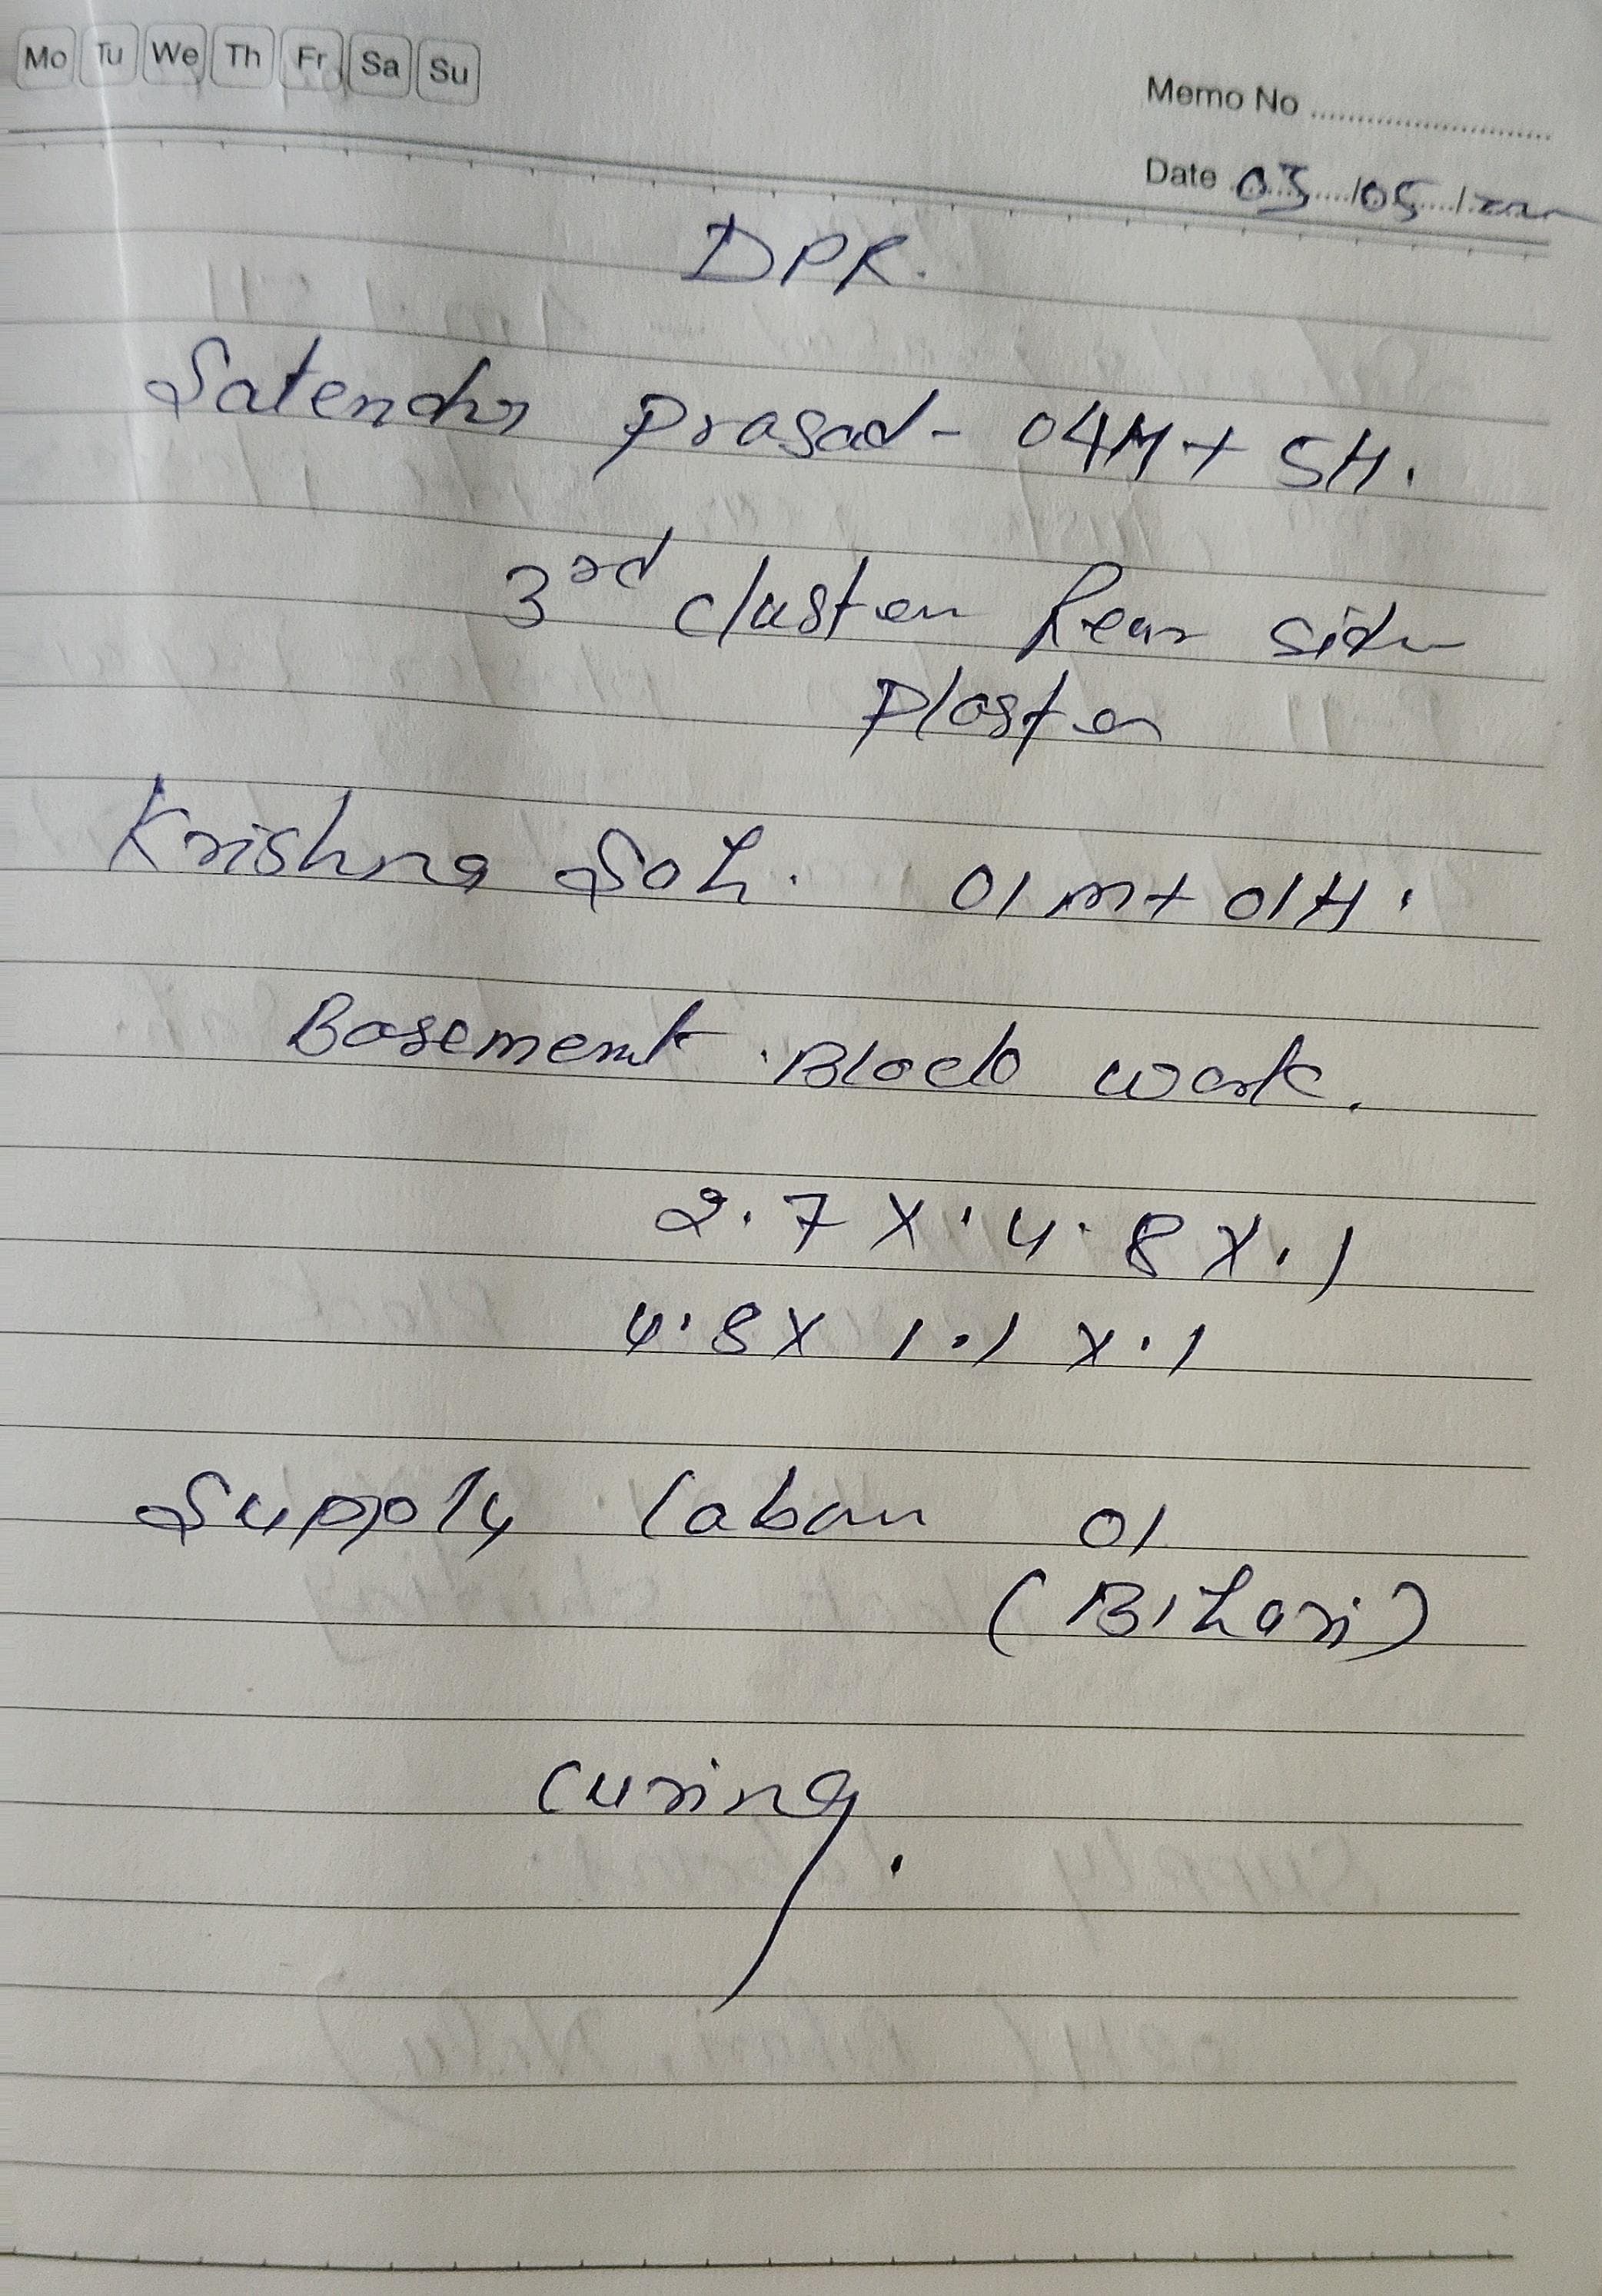 Mo Tu We Th Fr Sa Su
Memo No
Date 03/05/
DPR.
Satendra Prasad - 04M + 5H.
3rd cluster Rear side
Plaster
Krishna Sah. 01m + 01H.
Basement Block work.
2.7 x 4.8 x .1
4.8 x 1.1 x .1
Supply labour 01
(Bihari)
Curing.